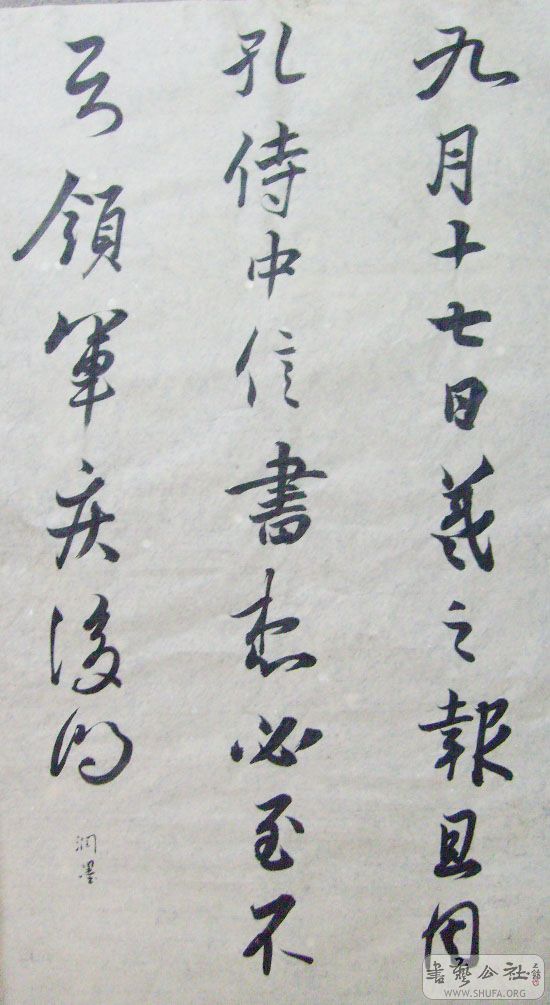 九月十七日羲之報且因
孔侍中信書想必至不
知領軍疾後問
润墨
書藝公社
WWW.SHUFA.ORG